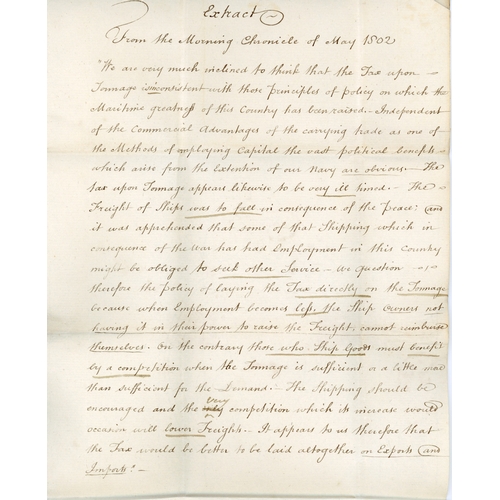 Extract
From the Morning Chronicle of May 1802
"We are very much inclined to think that the Tax upon
Tonnage is inconsistent with those Principles of Policy on which the
Maritime greatness of this Country has been raised – Independent
of the Commercial Advantages of the carrying trade as one of
the Methods of employing Capital the vast political benefits
which arise from the Extention of our Navy are obvious. – The
tax upon Tonnage appears likewise to be very ill timed – The
Freight of Ships was to fall in consequence of the Peace: (and
it was apprehended that some of that Shipping which in
consequence of the War has had Employment in this Country
might be obliged to seek other Service – We Question
therefore the Policy of laying the Tax directly on the Tonnage
because when Employment becomes less. the Ship Owners not
having it in their power to raise the Freight: cannot reimburse
themselves. On the contrary those who Ship Goods must benefit
by a competition when the Tonnage is sufficient or a little more
than sufficient for the Demand – The Shipping should be
encouraged and the very competition which its increase would
occasion will lower Freights – It appears to us therefore that
the Tax would be better to be laid altogether on Exports (and
Imports" –